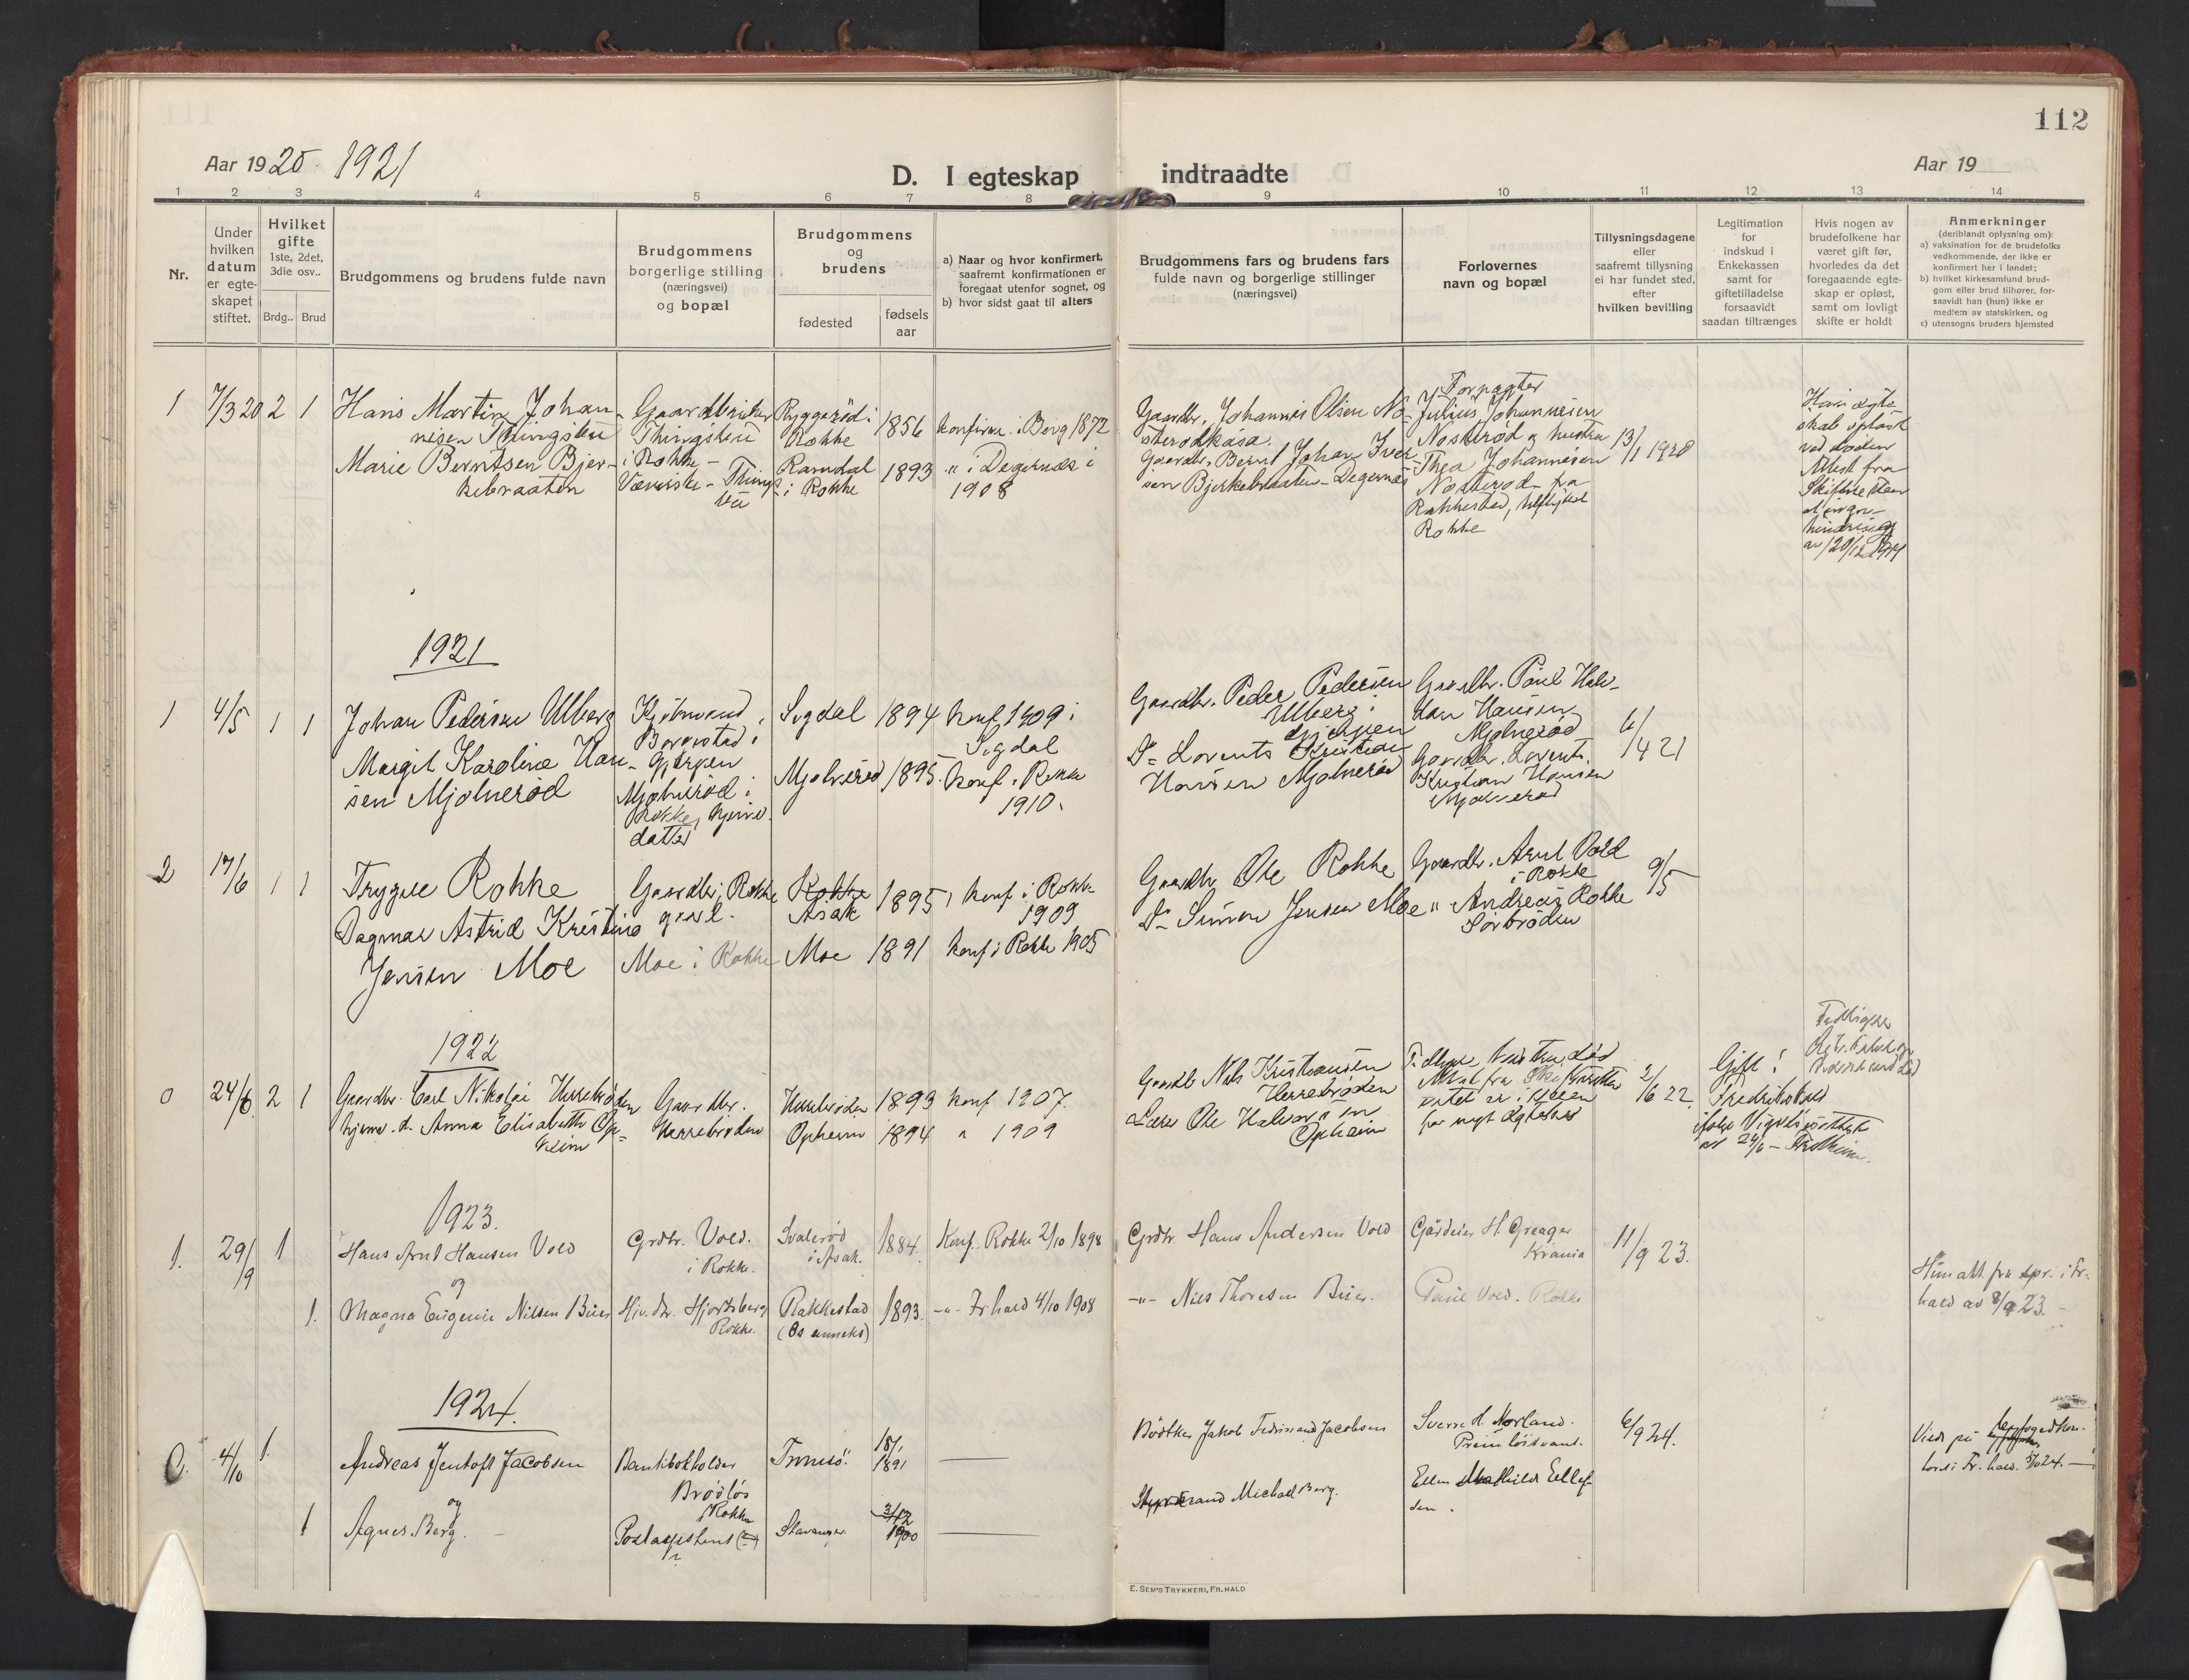 112
Aar 1920. 1921
D. I egteskap indtraadte
Aar 19
1 2 3 4 5 6 7 8 9 10 11 12 13 14
Nr.
Under hvilken datum er egte-skapet stiftet.
Hvilket gifte
1ste, 2det, 3die osv..
Brdg.. Brud
Brudgommens og brudens fulde navn
Brudgommens
borgerlige stilling
(næringsvei)
og bopæl
Brudgommens
og
brudens
fødested
fødsels
aar
a) Naar og hvor konfirmert,
saafremt konfirmationen er
foregaat utenfor sognet, og
b) hvor sidst gaat til alters
Brudgommens fars og brudens fars
fulde navn og borgerlige stillinger
(næringsvei)
Forlovernes
navn og bopæl
Tillysningsdagene
eller
saafremt tillysning
ei har fundet sted,
efter
hvilken bevilling
Legitimation
for
indskud i
Enkekassen
samt for
giftetilladelse
forsaavidt
saadan tiltrænges
Hvis nogen av
brudefolkene har
været gift før,
hvorledes da det
foregaaende egte-
skap er opløst,
samt om lovligt
skifte er holdt
Anmerkninger
(deriblandt oplysning om):
a) vaksination for de brudefolks
vedkommende, der ikke er
konfirmert her i landet;
b) hvilket kirkesamfund brud-
gom eller brud tilhører, for-
saavidt han (hun) ikke er
medlem av statskirken, og
c) utensogns bruders hjemsted
1 7/3 20 2 1
Hans Martin Johan-
nesen Thingsten
Marie Berntsen Bjer-
kebraaten
Gaardbruker
Thingsten
i Rokke -
Ryggerød i
Rokke
Ramdal
i Rokke
1856
1893
Konfirm. i Berg 1872
" i Degernes i
1908
Gaardbr. Johannes Olsen No-
sterødkåsa.
Gaardbr. Bernt Johan Iver-
sen Bjerkebraaten - Degernes
Forpagter
Julius Johannesen
Nosterød og hustru
Thea Johannesen
Nosterød fra
Rakkestad,
Rokke
13/1 1920
ved døden
Attest fra
1921
1 4/5 1 1
Johan Pedersen Ulberg
Margit Karoline Han-
sen Mjølnerød
Kjøbmand,
Borgestad i
Gjerpen
Mjølnerød i
Rokke, hjemv.
datter
Sigdal
Mjølnerød
1894
1895.
Konf. 1909 i
Sigdal
Konf. i Rokke
1910.
Gaardbr. Peder Pedersen
Ulberg i
Gjerpen
Do Lorents Kristian
Hansen Mjølnerød
Gaardbr. Paul Hal-
dan Hansen
Mjølnerød
Gaardbr. Lorents
Kristian Hansen
Mjølnerød
6/4 21
2 17/6 1 1
Trygve Rokke
Dagmar Astrid Kristine
Jensen Moe
Gaardbr. Rokke
Moe i Rokke
Rokke
Asak
Moe
1895
1891
Konf i Rokke
1909
Konf i Rokke 1905
Gaardbr Ole Rokke
Do Simon Jensen Moe
Gaardbr. Arnt Vold
i Rokke
" Andreas Rokke
Sørbrøden
9/5
1922
0 24/6 2 1
Gaardbr. Carl Nikolai Herrebrøden
hjemv. d. Anna Elisabeth Op-
heim
Gaardbr.
Herrebrøden
Herrebrøden
Opheim
1893
1894
Konf 1907.
" 1909
Gaardb Nils Kristiansen
Herrebrøden
Lærer Ole Halvorsen
Opheim
2/6 22.
Gift i
Fredrikshald
ifølge Vigselsattest
av 24/6 -
1923.
1. 29/9 1
Hans Arnt Hansen Vold
og
1. Magna Eugenie Nilsen Buer
Grdbr. Vold.
i Rokke.
Hjv. dtr. Hjortsberg
Rokke.
Svalerød
i Asak.
Rakkestad
(Os anneks)
1884.
1893.
Konf. Rokke 2/10 1898
-"- Frhald 4/10 1908
Grdbr Hans Andersen Vold
-"- Nils Thoresen Buer.
Gårdeier H. Greager
Krania
Paul Vold. Rokke
11/9 23.
hald av 8/9 23. -
1924.
0. 4/10 1.
Andreas Jentoft Jacobsen
og
1 Agnes Berg. -
Bankbokholder
Brødløs
Rokke
Postassistent (?)
Tromsø.
Stavanger.
18/1
1891
3/12
1900
Bødtker Jakob Ferdinand Jacobsen
Styrmand Michael Berg.
Sverre H. Norland.
Premierløitnant.
Ellen Mathilde Ellef-
sen.
6/9 24.
Viede på byfogedkon-
toret i Fr.hald. 4/10 24. -
E. SEM'S TRYKKERI, FR.HALD